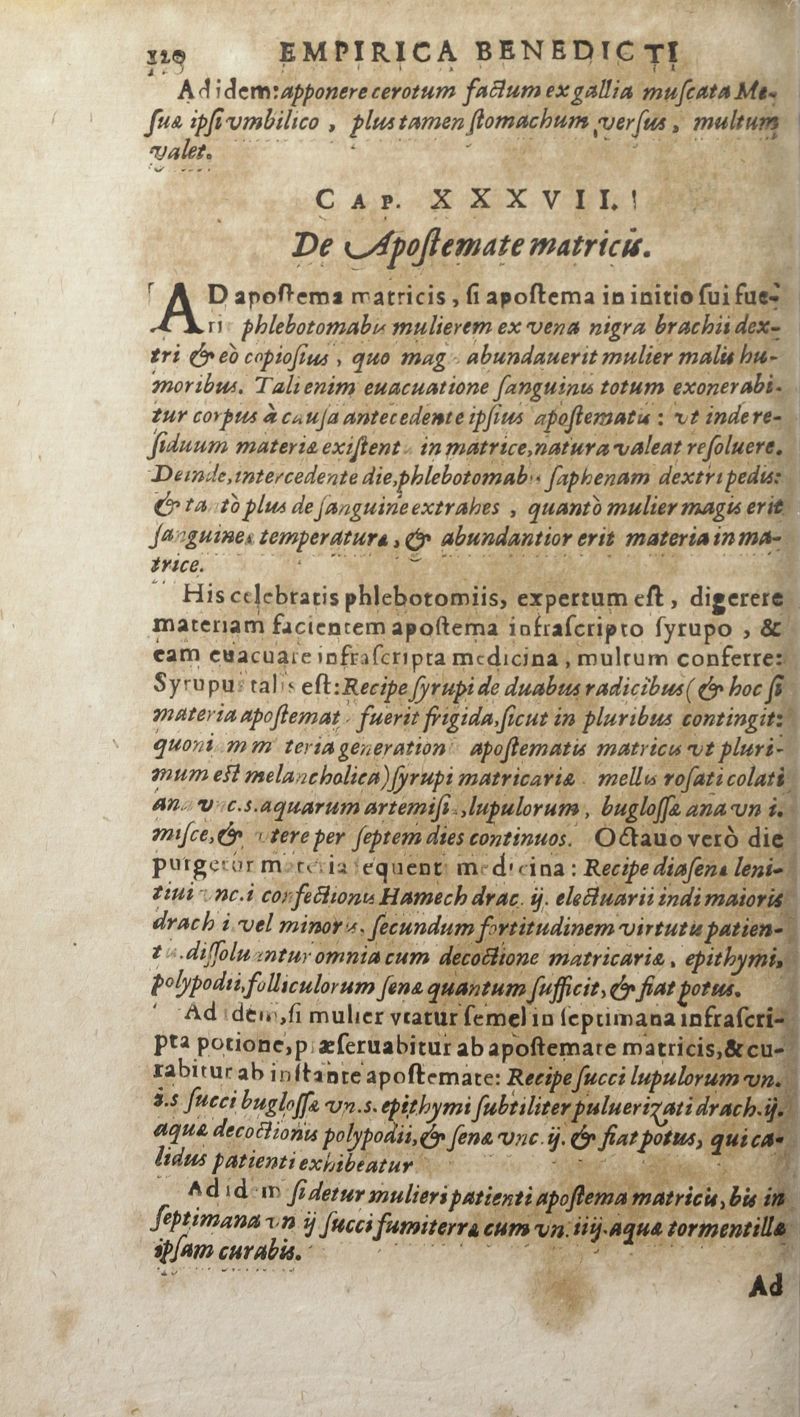 EMPIRICA BENEDICTI
Ad idem: apponere cerotum factum ex gallia muſcata Me-
ſuæ ipſi vmbilico , plus tamen ſtomachum verſus , multum
valet.
CAP. XXXVII.
De Apoſtemate matricis.
AD apoſtema matricis , ſi apoſtema in initio ſui fue-
ri phlebotomabis mulierem ex vena nigra brachii dex-
tri & eò copioſius , quo mag abundauerit mulier malis hu-
moribus. Tali enim euacuatione ſanguinis totum exonerabi-
tur corpus à cauſa antecedente ipſius apoſtematis : vt inde re-
ſiduum materiæ exiſtent in matrice, natura valeat reſoluere.
Deinde, intercedente die, phlebotomab ſaphenam dextri pedis:
& ta tò plus de ſanguine extrahes , quantò mulier magis erit
ſanguineæ temperaturæ , & abundantior erit materia in ma-
trice.
His celebratis phlebotomiis, expertum eſt , digerere
materiam facientem apoſtema infraſcripto ſyrupo , &
eam euacuare infraſcripta medicina , multum conferre:
Syrupus talis eſt: Recipe ſyrupi de duabus radicibus (& hoc ſi
materia apoſtemat fuerit frigida, ſicut in pluribus contingit:
quoni m m teria generation apoſtematis matricis vt pluri-
mum eſt melancholica) ſyrupi matricariæ mellis roſati colati
an. v c.s. aquarum artemiſi , lupulorum , bugloſſæ ana vn i.
miſce, & vtere per ſeptem dies continuos. Octauo verò die
purgetur materia equent medicina : Recipe diaſenæ leni-
tiui nc.i confectionis Hamech drac. ij. electuarii indi maioris
drach i vel minoris, ſecundum fortitudinem virtutis patien-
t . diſſoluantur omnia cum decoctione matricariæ , epithymi,
polypodii, folliculorum ſenæ quantum ſufficit, & fiat potus.
Ad idem, ſi mulier vtatur ſemel in ſeptimana infraſcri-
pta potione, præſeruabitur ab apoſtemate matricis, & cu-
rabitur ab inſtante apoſtemate: Recipe ſucci lupulorum vn.
i.s ſucci bugloſſæ vn.s. epithymi ſubtiliter puluerizati drach. ij.
aquæ decoctionis polypodii, & ſenæ vnc. ij. & fiat potus, qui ca-
lidus patienti exhibeatur
Ad id m ſi detur mulieri patienti apoſtema matricis, bis in
ſeptimana vn ij ſucci fumiterræ cum vn. iiij. aquæ tormentillæ
ipſam curabis.
Ad